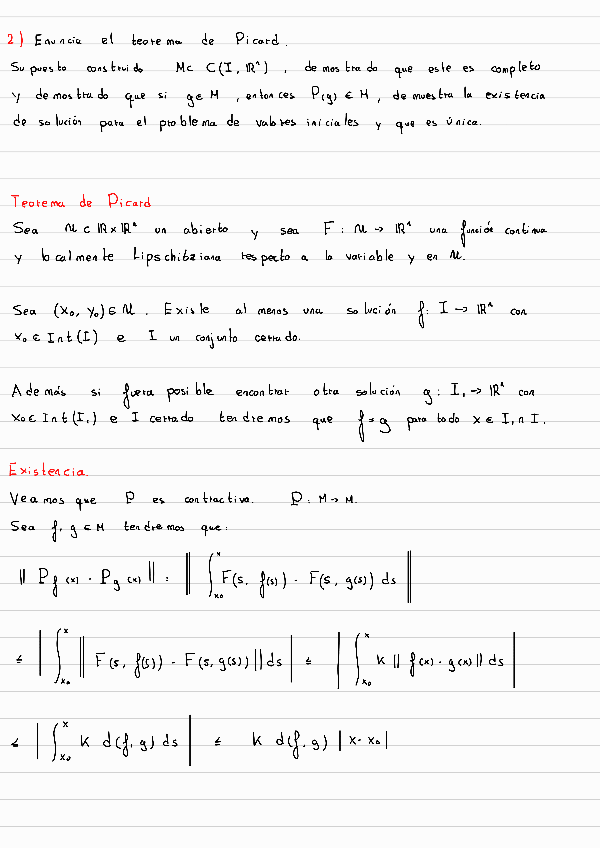 2) Enuncia el teorema de Picard.
Supuesto construido M ⊂ C(I, ℝⁿ), demostrado que este es completo
y demostrado que si g ∈ M, entonces P(g) ∈ M, demuestra la existencia
de solución para el problema de valores iniciales y que es única.
Teorema de Picard
Sea U ⊂ ℝ×ℝⁿ un abierto y sea F: U → ℝⁿ una función continua
y localmente Lipschitziana respecto a la variable y en U.
Sea (x₀, y₀) ∈ U. Existe al menos una solución f: I → ℝⁿ con
x₀ ∈ Int(I) e I un conjunto cerrado.
Además si fuera posible encontrar otra solución g: I₁ → ℝⁿ con
x₀ ∈ Int(I₁) e I cerrado tendremos que f = g para todo x ∈ I₁ ∩ I.
Existencia.
Veamos que P es contractiva. P: M → M.
Sea f, g ∈ M tendremos que:
‖ Pf(x) - Pg(x) ‖ = ‖ ∫_{x₀}^{x} F(s, f(s)) - F(s, g(s)) ds ‖
≤ | ∫_{x₀}^{x} ‖ F(s, f(s)) - F(s, g(s)) ‖ ds | ≤ | ∫_{x₀}^{x} K ‖ f(x) - g(x) ‖ ds |
≤ | ∫_{x₀}^{x} K d(f, g) ds | ≤ K d(f, g) | x - x₀ |